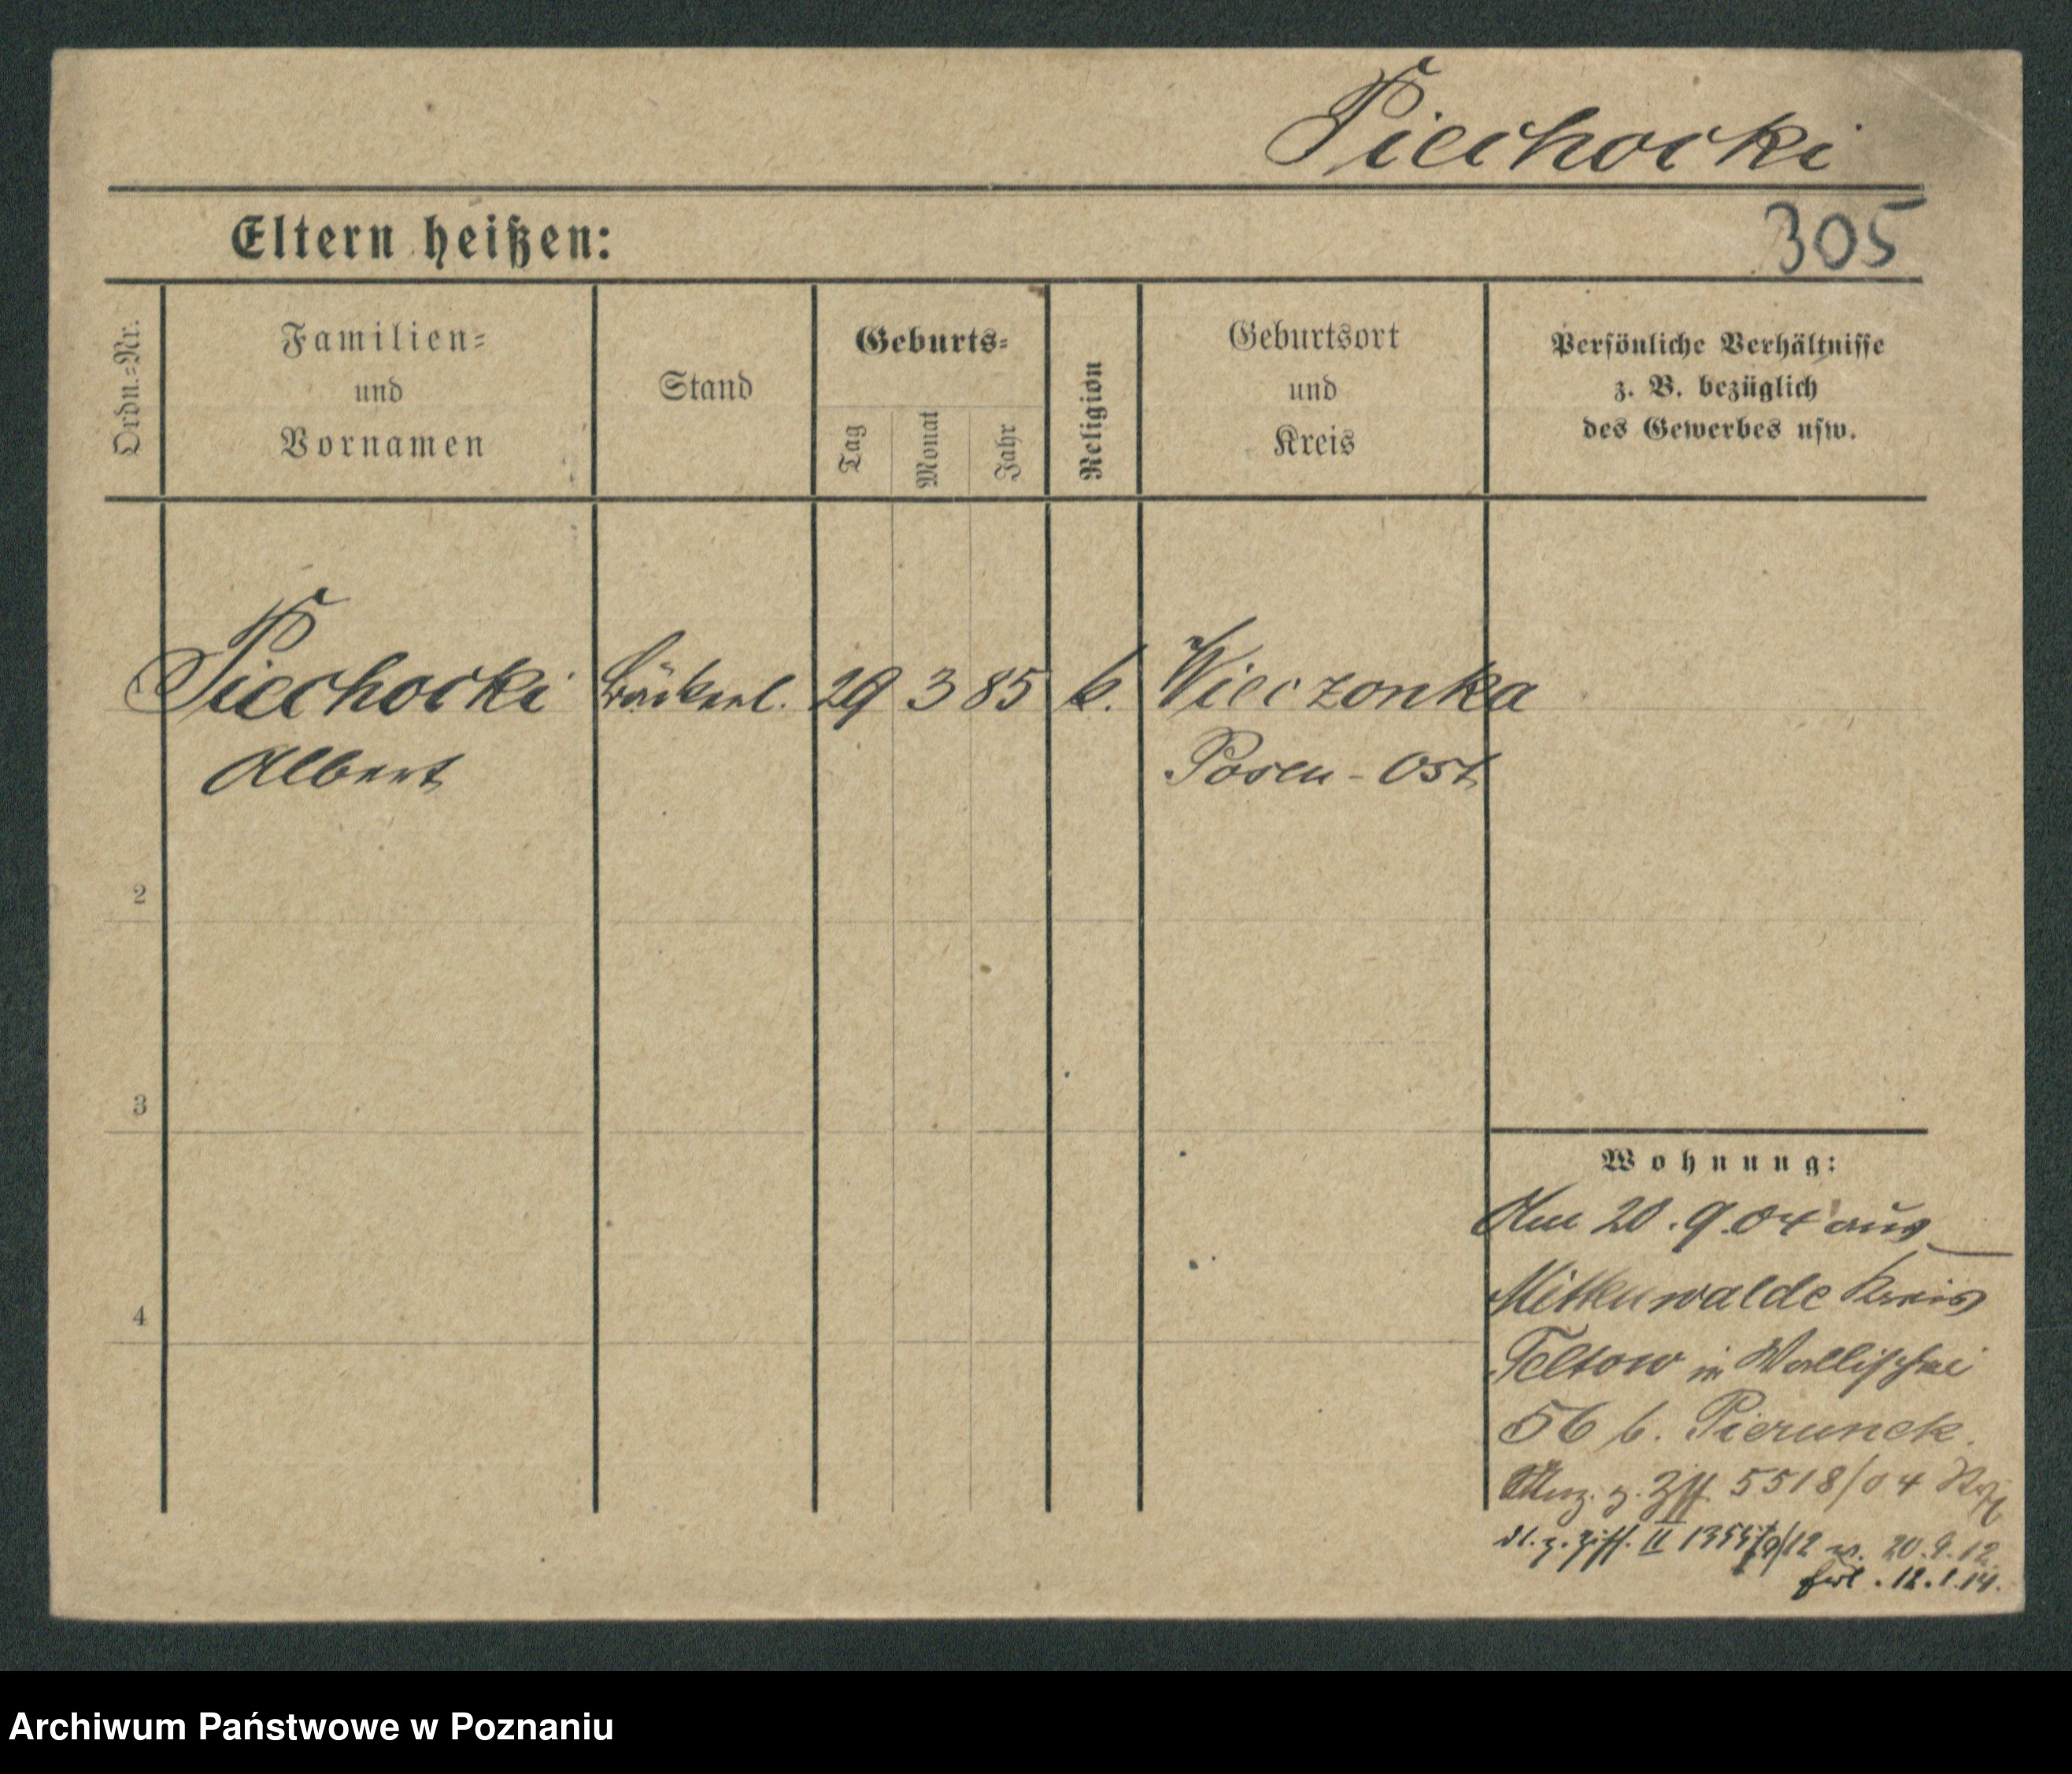 Piechocki
Eltern heißen:
305
Ordn.=Nr.
Familien=
und
Vornamen
Stand
Geburts=
Tag
Monat
Jahr
Religion
Geburtsort
und
Kreis
Persönliche Verhältnisse
z. B. bezüglich
des Gewerbes usw.
Piechocki Bäckerl. 29 3 85 k. Wieczonka
Albert Posen-Ost
2
3
4
Wohnung:
Am 20.9.04 aus
Mittenwalde Kreis
Teltow in Wallischei
56 b. Pierunek.
z. Ziff. 5518/04
z. Ziff. II /12 v. 20.9.12.
12.1.14.
Archiwum Państwowe w Poznaniu